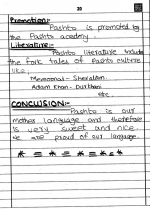 20
Promotion:-
Pashto is promoted by
the Pashto academy.
Literature:-
Pashto literature include
the folk tales of Pashto culture
like.
Momand - Sheralam.
Adam Khan - Durkhani
etc.
CONCLUSION:-
Pashto is our
mother language and therefore
is very sweet and nice.
We are proud of our language.